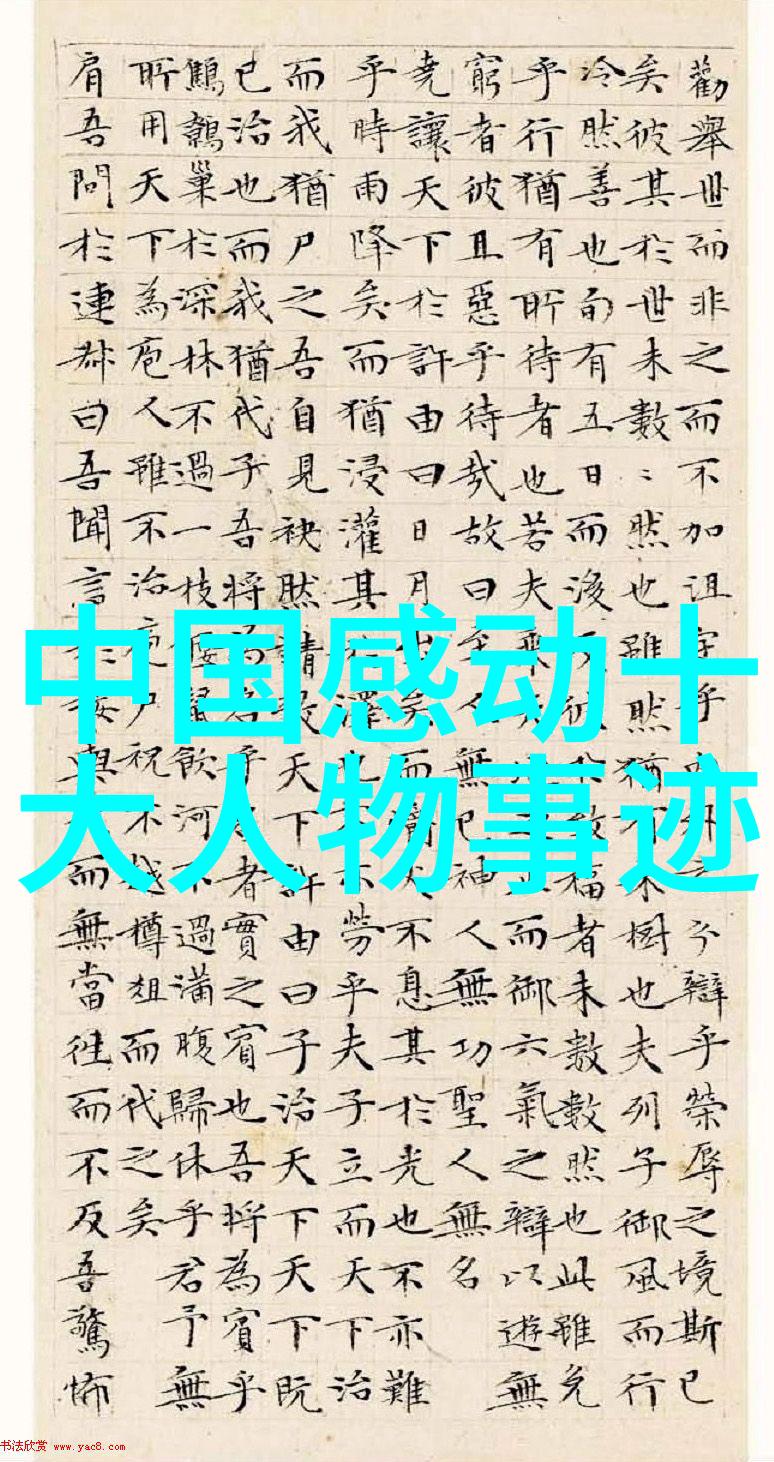 中国感动十
大人物事迹
勸舉世而非之而不加沮定乎分辯乎榮辱之境斯已
矣彼其於世未數〻然也雖然猶未樹也夫列子御風而行
冷然善也旬有五日而後反彼於致福者未數數然也此雖免
乎行猶有所待者也若夫乘天正而御六氣之辯以遊無
窮者彼且惡乎待哉故曰至人無已神人無功聖人無名
堯讓天下於許由曰日月出矣而爝火不息其於光也不亦難
乎時雨降矣而猶浸灌其於澤也不亦勞乎夫子立而天下治
而我猶尸之吾自見袂然請致天下許由曰子治天下天下既
已治也而我猶代子吾將為名乎者實之賓也吾將為賓乎
鷦鷯巢於深林不過一枝偃鼠飲河不過滿腹歸休乎君予無
所用天下為庖人雖不治庖尸祝不越樽俎而代之矣
肩吾問於連叔曰吾聞言於接輿而無當往而不反吾驚怖
书法欣赏 www.yac8.com